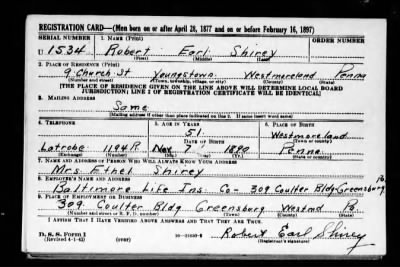 REGISTRATION CARD—(Men born on or after April 28, 1877 and on or before February 16, 1897)
SERIAL NUMBER 1. NAME (Print) ORDER NUMBER
U 1534 Robert Earl Shirey
(First) (Middle) (Last)
2. PLACE OF RESIDENCE (Print)
9 Church St Youngstown Westmoreland Penna
(Number and street) (Town, township, village, or city) (County) (State)
[THE PLACE OF RESIDENCE GIVEN ON THE LINE ABOVE WILL DETERMINE LOCAL BOARD
JURISDICTION; LINE 2 OF REGISTRATION CERTIFICATE WILL BE IDENTICAL]
3. MAILING ADDRESS
Same
[Mailing address if other than place indicated on line 2. If same insert word same]
4. TELEPHONE 5. AGE IN YEARS 6. PLACE OF BIRTH
51 Westmoreland
DATE OF BIRTH (Town or county)
Latrobe 1194R Nov 7 1890 Penna
(Exchange) (Number) (Mo.) (Day) (Yr.) (State or country)
7. NAME AND ADDRESS OF PERSON WHO WILL ALWAYS KNOW YOUR ADDRESS
Mrs Ethel Shirey
8. EMPLOYER'S NAME AND ADDRESS
Baltimore Life Ins. Co- 309 Coulter Bldg Greensburg Pa.
9. PLACE OF EMPLOYMENT OR BUSINESS
309 Coulter Bldg Greensburg Westmd Pa.
(Number and street or R. F. D. number) (Town) (County) (State)
I AFFIRM THAT I HAVE VERIFIED ABOVE ANSWERS AND THAT THEY ARE TRUE.
D. S. S. Form 1
(Revised 4-1-42) (over) Robert Earl Shirey
(Registrant's signature)